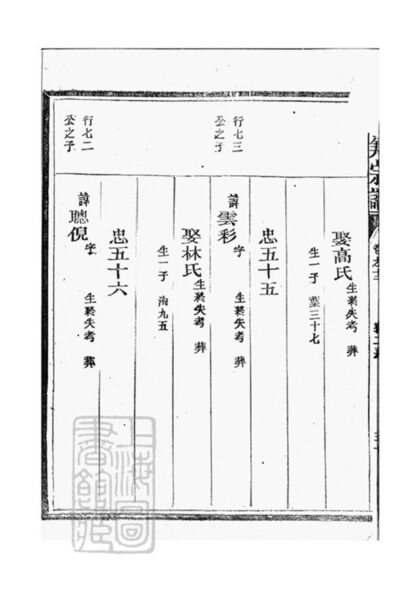 娶高氏 生終失考 葬
生一子 葉三十七
行七三
公之子
忠五十五
諱雲彩 字 生終失考 葬
娶林氏 生終失考 葬
生一子 海九五
行七二
公之子
忠五十六
諱聰倪 字 生終失考 葬
上海圖書館藏